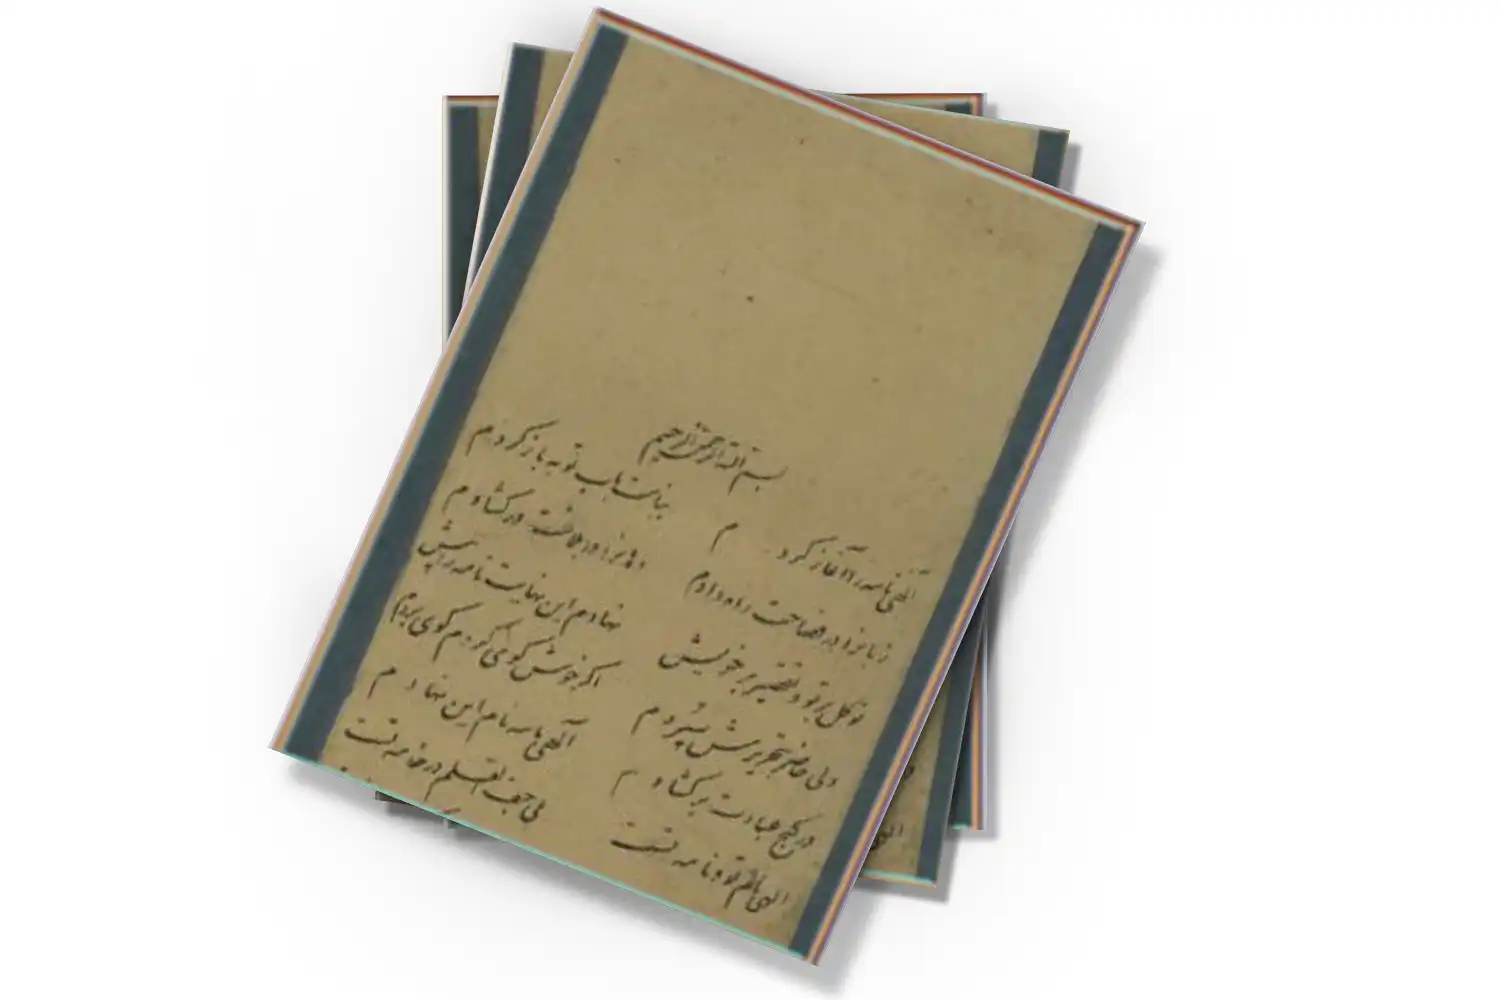 بسم الله الرحمن الرحیم
الهی نامه را آغاز کردم بنامت باب توبه باز کردم
زبانرا در فصاحت راه دادم در بلاغت در کشادم
توکل بر تو و تقصیر بر خویش نهادم این نهایت نامه در پیش
ولی بپردم اگر خوش کوی کر دم کوی بردم
در کنج عبادت بر کشادم الهی نامه نام این نهادم
الهی نامه تست فی جف القلم در خامه تست